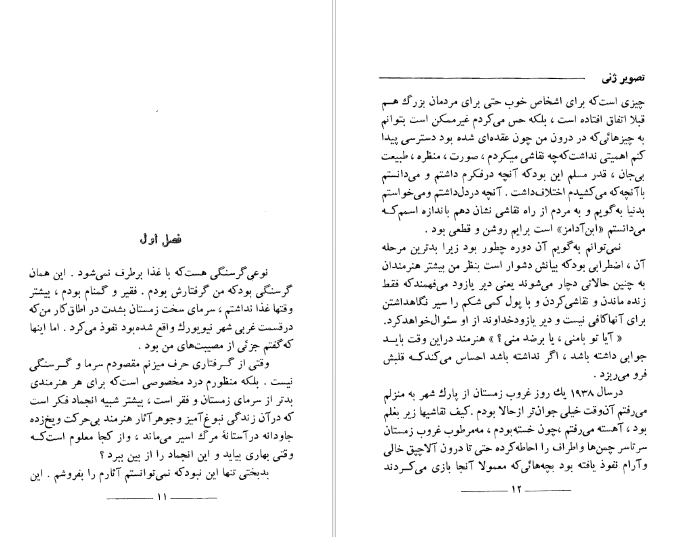 فصل اول
نوعی گرسنگی هست‌که با غذا برطرف نمی‌شود . این همان
گرسنگی بودکه من گرفتارش بودم . فقیر و گمنام بودم ، بیشتر
وقتها غذا نداشتم ، سرمای سخت زمستان بشدت در اطاق کار من‌که
درقسمت غربی شهر نیویورك واقع شده‌بود نفوذ می‌کرد . اما اینها
که‌گفتم جزئی از مصیبت‌های من بود .
وقتی از گرفتاری حرف میزنم مقصودم سرما و گرسنگی
نیست . بلکه منظورم درد مخصوصی است‌که برای هر هنرمندی
بدتر از سرمای زمستان و فقر است ، بیشتر شبیه انجماد فکر است
که درآن زندگی نبوغ‌آمیز وجوهرآثار هنرمند بی‌حرکت ویخ‌زده
جاودانه درآستانهٔ مرگ اسیر می‌ماند ، واز کجا معلوم است‌که
وقتی بهاری بیاید و این انجماد را از بین ببرد ؟
بدبختی تنها این نبودکه نمی‌توانستم آثارم را بفروشم . این
۱۱
تصویر ژنی
چیزی است‌که برای اشخاص خوب حتی برای مردمان بزرگ هم
قبلا اتفاق افتاده است ، بلکه حس می‌کردم غیرممکن است بتوانم
به چیزهائی‌که در درون من چون عقده‌ای شده بود دسترسی پیدا
کنم اهمیتی نداشت‌که‌چه نقاشی میکردم ، صورت ، منظره ، طبیعت
بی‌جان ، قدر مسلم این بودکه آنچه درفکرم داشتم و می‌دانستم
باآنچه‌که می‌کشیدم اختلاف‌داشت . آنچه دردل‌داشتم ومی‌خواستم
بدنیا به‌گویم و به مردم از راه نقاشی نشان دهم باندازه اسمم‌که
می‌دانستم «ابن‌آدامز» است برایم روشن و قطعی بود .
نمی‌توانم به‌گویم آن دوره چطور بود زیرا بدترین مرحله
آن ، اضطرابی بودکه بیانش دشوار است بنظر من بیشتر هنرمندان
به چنین حالاتی دچار می‌شوند یعنی دیر یازود می‌فهمندکه فقط
زنده ماندن و نقاشی‌کردن و با پول کمی شکم را سیر نگاهداشتن
برای آنهاکافی نیست و دیر یازودخداوند از او سئوال‌خواهدکرد.
« آیا تو بامنی ، یا برضد منی ؟ » هنرمند دراین وقت باید
جوابی داشته باشد ، اگر نداشته باشد احساس می‌کندکه قلبش
فرو می‌ریزد .
درسال ۱۹۳۸ یك روز غروب زمستان از پارك شهر به منزلم
می‌رفتم آن‌وقت خیلی جوان‌تر ازحالا بودم .کیف نقاشیها زیر بغلم
بود ، آهسته می‌رفتم ،چون خسته‌بودم ، مه‌مرطوب غروب زمستان
سرتاسر چمن‌ها واطراف را احاطه‌کرده حتی تا درون آلاچیق خالی
وآرام نفوذ یافته بود بچه‌هائی‌که معمولا آنجا بازی می‌کردند
۱۲